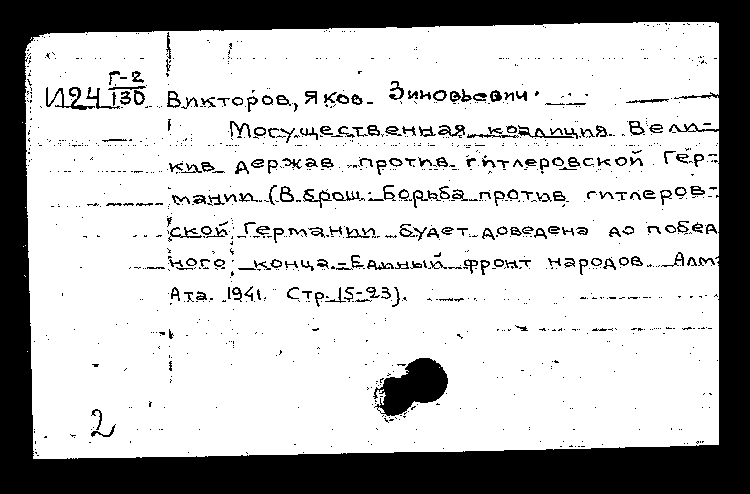 Г-2
И24 130 Викторов, Яков Зиновьевич.
Могущественная коалиция Вели-
ких держав против гитлеровской Гер-
мании (В брош: Борьба против гитлеров-
ской Германии будет доведена до побед
ного конца.-Единый фронт народов. Алма
Ата. 1941. Стр. 15-23).
2